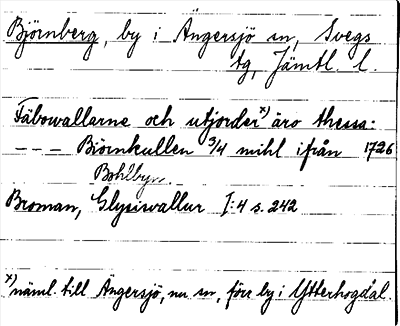 Björnberg, by i Ängersjö sn, Svegs
tg, Jämtl. l.
Fäbowallarne och utjorder x) äro thessa:
--- Biörnkullen 3/4 mihl ifrån 1726
Bohlbyn.
Broman, Glysiswallur I:4 s. 242
x) näml. till Ängersjö, nu sn, förr by i Ytterhogdal.